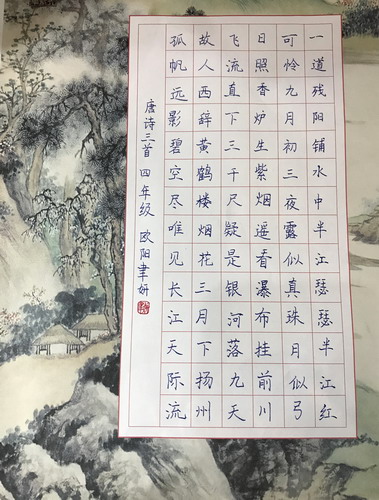 一道残阳铺水中半江瑟瑟半江红
可怜九月初三夜露似真珠月似弓
日照香炉生紫烟遥看瀑布挂前川
飞流直下三千尺疑是银河落九天
故人西辞黄鹤楼烟花三月下扬州
孤帆远影碧空尽唯见长江天际流
唐诗三首 四年级 欧阳聿妍